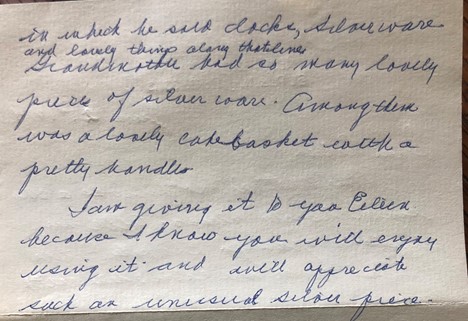 in which he sold clocks, silverware
and lovely things along that line.
Grandmother had so many lovely
pieces of silverware. Among them
was a lovely cake basket with a
pretty handle.
I am giving it to you Eileen
because I know you will enjoy
using it and will appreciate
such an unusual silver piece.